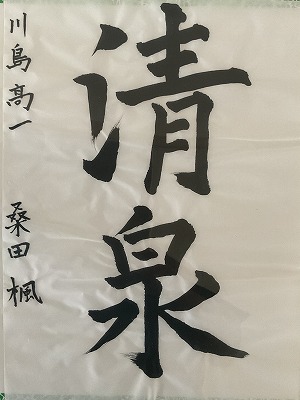 清泉
川島高一 桑田楓